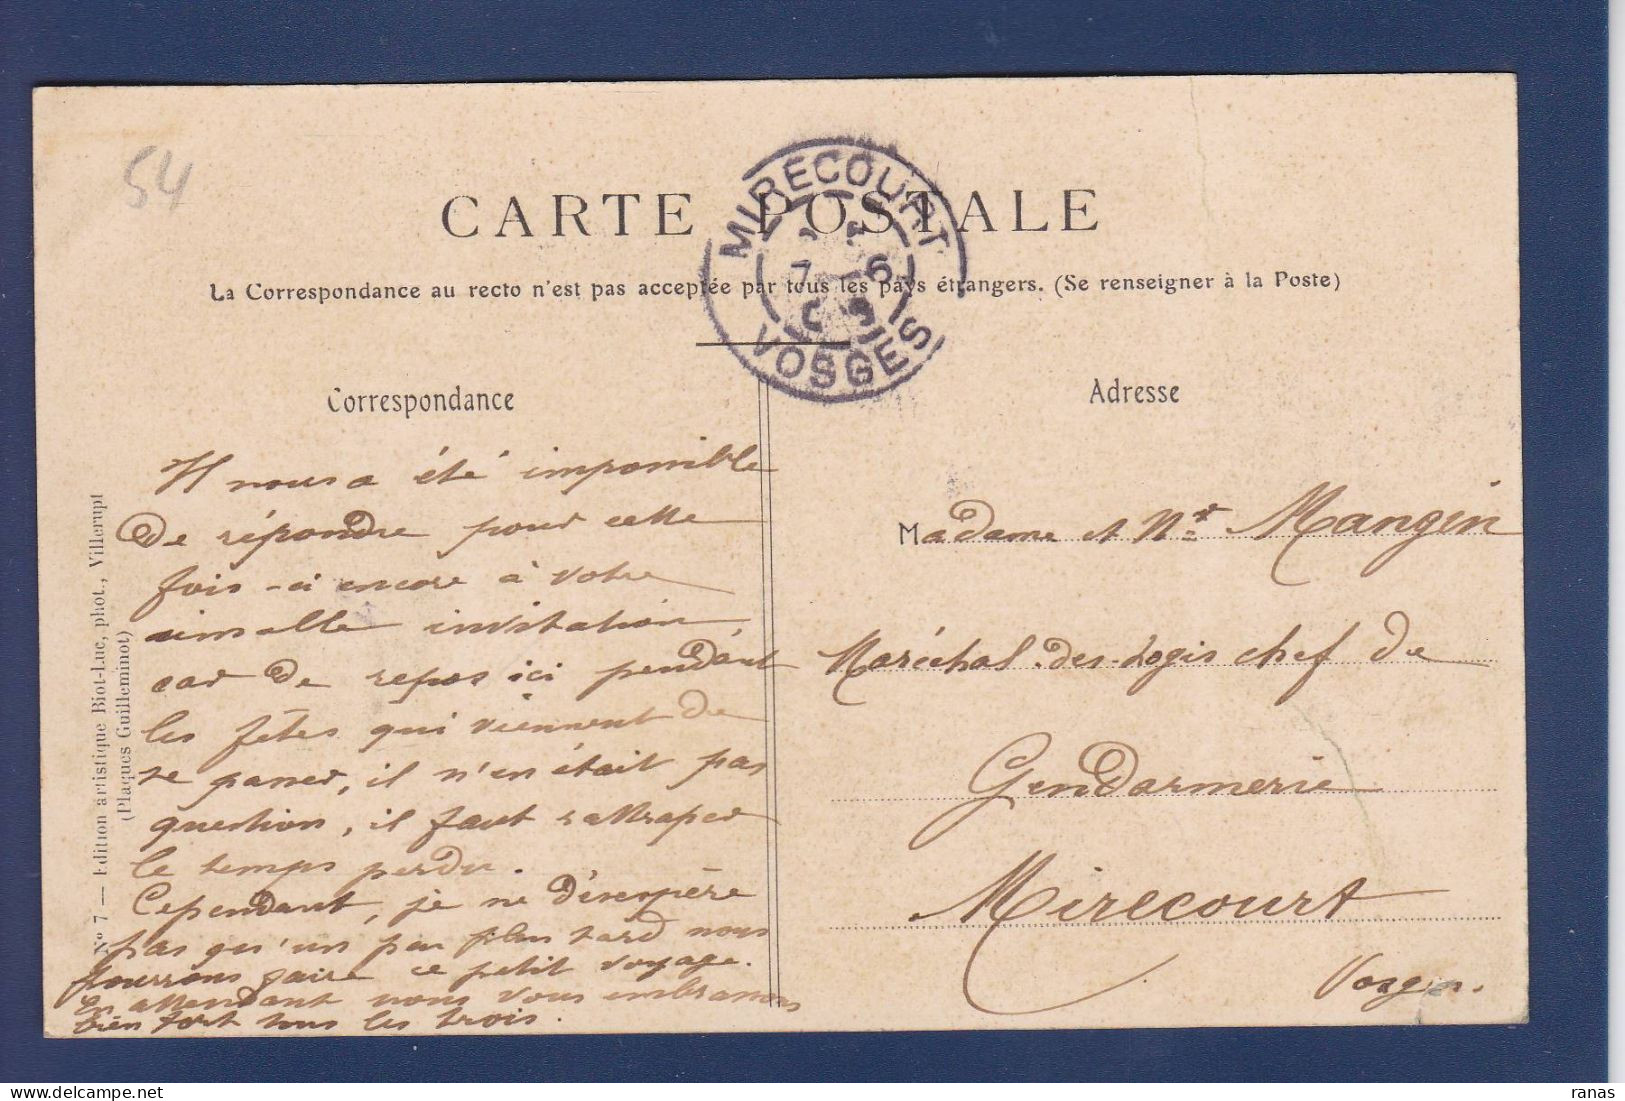 54
CARTE POSTALE
MIRECOURT
7 6
VOSGES
La Correspondance au recto n'est pas acceptée par tous les pays étrangers. (Se renseigner à la Poste)
Correspondance
Il nous a été impossible
de répondre pour cette
fois-ci encore à votre
aimable invitation
car de repos ici pendant
les fêtes qui viennent de
se passer, il n'en était pas
question, il faut rattraper
le temps perdu.
Cependant, je ne désespère
pas qu'un peu plus tard nous
pourrons faire ce petit voyage.
En attendant nous vous embrassons
bien fort tous les trois.
Adresse
Madame et Mr Mangin
Maréchal-des-Logis chef de
Gendarmerie
Mirecourt
Vosges.
No 7 — Edition artistique Biot-Luc, phot., Villerupt
(Plaques Guilleminot)
ranas